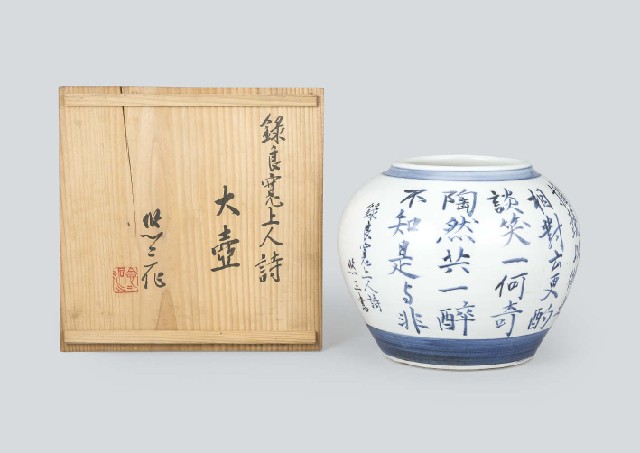 録良寛上人詩
大壺
悠三作
相對云更酌
談笑一何奇
陶然共一醉
不知是与非
録良寛上人詩
悠三書